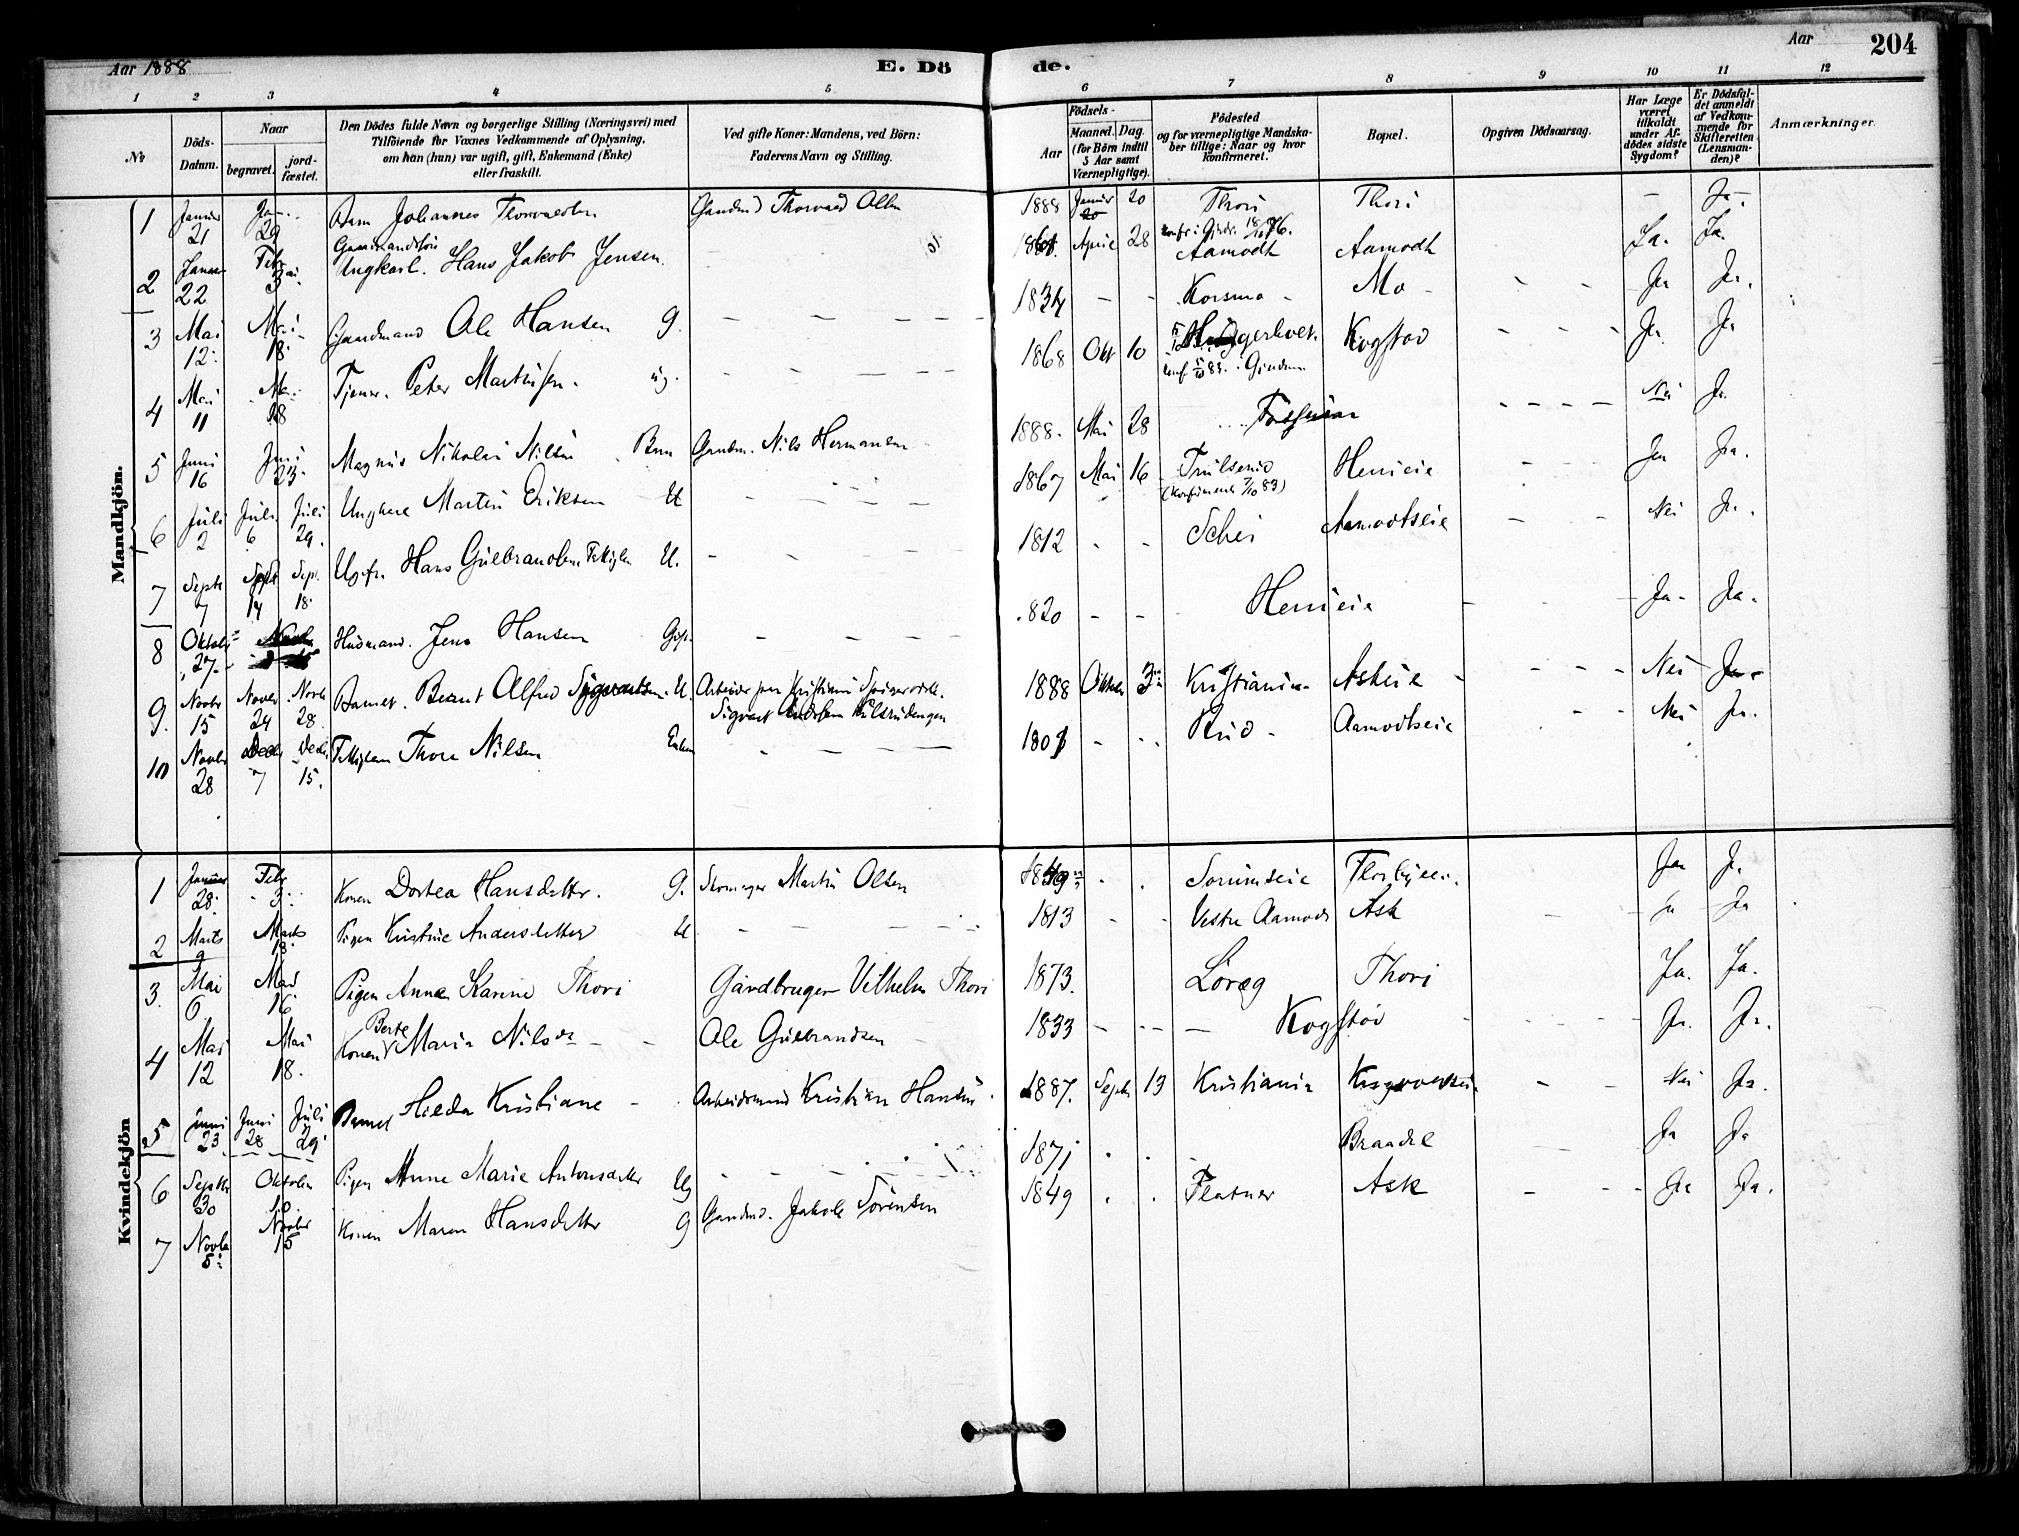 Aar 1888
E. Dö
de.
Aar
204
1 2 3 4 5 6 7 8 9 10 11 12
No
Döds-Datum.
Naar
begravet.
jord-fæstet.
Den Dödes fulde Navn og borgerlige Stilling (Næringsvei) med
Tilföiende for Voxnes Vedkommende af Oplysning,
om han (hun) var ugift, gift, Enkemand (Enke)
eller fraskilt.
Ved gifte Koner: Mandens, ved Börn:
Faderens Navn og Stilling.
Födsels-
Aar
Maaned.
Dag.
(for Börn indtil
5 Aar samt
Værnepligtige).
Födested
og for værnepligtige Mandska-
ber tillige: Naar og hvor
konfirmeret.
Bopæl.
Opgiven Dödsaarsag.
Har Læge
været
tilkaldt
under Af-
dödes sidste
Sygdom?
Er Dödsfal-
det anmeldt
af Vedkom-
mende for
Skifteretten
(Lensman-
den)?
Anmærkninger.
Mandkjön.
1 Januar 21 Jan. 29 Barn Johannes Thorvaldsen Gaardmd Thorvald Olsen 1888 Januar 20 Thori Thori – Ja
2 Januar 22 Febr 3 Ungkarl. Hans Jakob Jensen April 28 Aamodt Aamodt Ja. Ja.
3 Mai 12 Mai 18 Gaardmand Ole Hansen g. 1834 – – Korsmo Mo Ja Ja.
4 Mai 11 Mai 18 Tjener. Peter Martinsen. ug. 1868 Okt 10 Kogstad Ja Ja
5 Juni 16 Juni 23 Magnus Nikolai Nilsen Barn Gaardm. Nils Hermansen 1888. Mai 28 Nei Ja
6 Juli 2 Juli 6 Juli 29. Ungkarl Martin Eriksen U 1867 Mai 16 Trulserud (Konfirmeret 7/10 83) Henieie Ja Ja.
7 Septr 7 Septr 14 Sept. 18 Hans Gulbrandsen U. 1812 – – Schei Aamodtseie Nei Ja.
8 Oktober 27 Husmand. Jens Hansen Gift 820 – – Henieie Ja Ja.
9. Novbr 15 Novbr 24 Novbr 28 Barnet. Bernt Alfred Sygvartsen U. Arbeider paa Kristiania Spigerverk. 1888 Oktober 3 Kristiania Askeie Nei Ja
Sigvart
10 Novbr 28 Decbr 7 Decbr 15. Thore Nilsen Enkem – – Rud Aamodtseie Nei Ja.
Kvindekjön
1 Januar 28 Febr 3 Konen Dortea Hansdatter. g. Martin Olsen Sorumseie Ja Ja
2 Marts 9 Marts 18 Pigen Kristine Andersdatter U 1813 – – Vestre Aamodt Ask Ja Ja
3. Mai 6 Mai 16 Pigen Anna Karine Thori Gardbruger Vilhelm Thori 1873. Loræg Thori Ja. Ja.
4 Mai 12 Mai 18. Konen Berte Maria Nilsdr Ole Gulbrandsen 1833 – – – Kogstad Ja. Ja.
5 Juni 23 Juni 28 Juli 29 Barnet Hilda Kristiane Arbeidsmand Kristian Hansen 1887. Septr 13 Kristiania Nei Ja.
6 Septbr 30 Oktober 10. Pigen Anne Marie Antonsdatter Ug 1871 Braadte Ja Ja
7 Novbr 5 Novbr 15 Konen Maren Hansdatter g Gaardmd. Jakob Sørensen 1849 Flatner Ask Ja Ja.